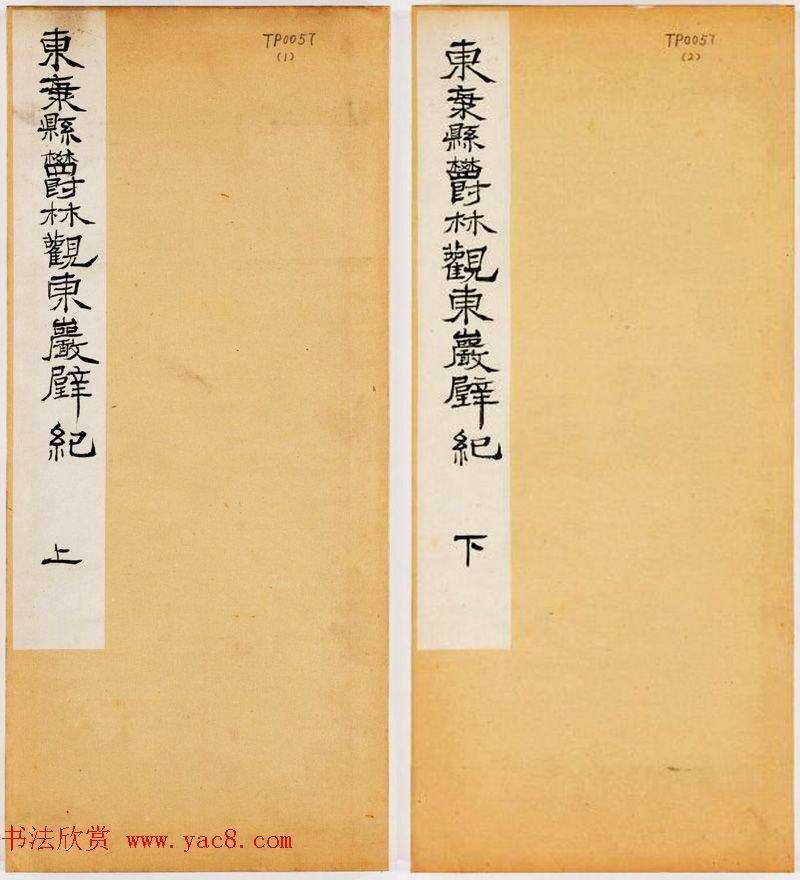 東海縣欝林觀東巖壁紀 上
TP0057
(1)
東海縣欝林觀東巖壁紀 下
TP0057
(2)
书法欣赏 www.yac8.com